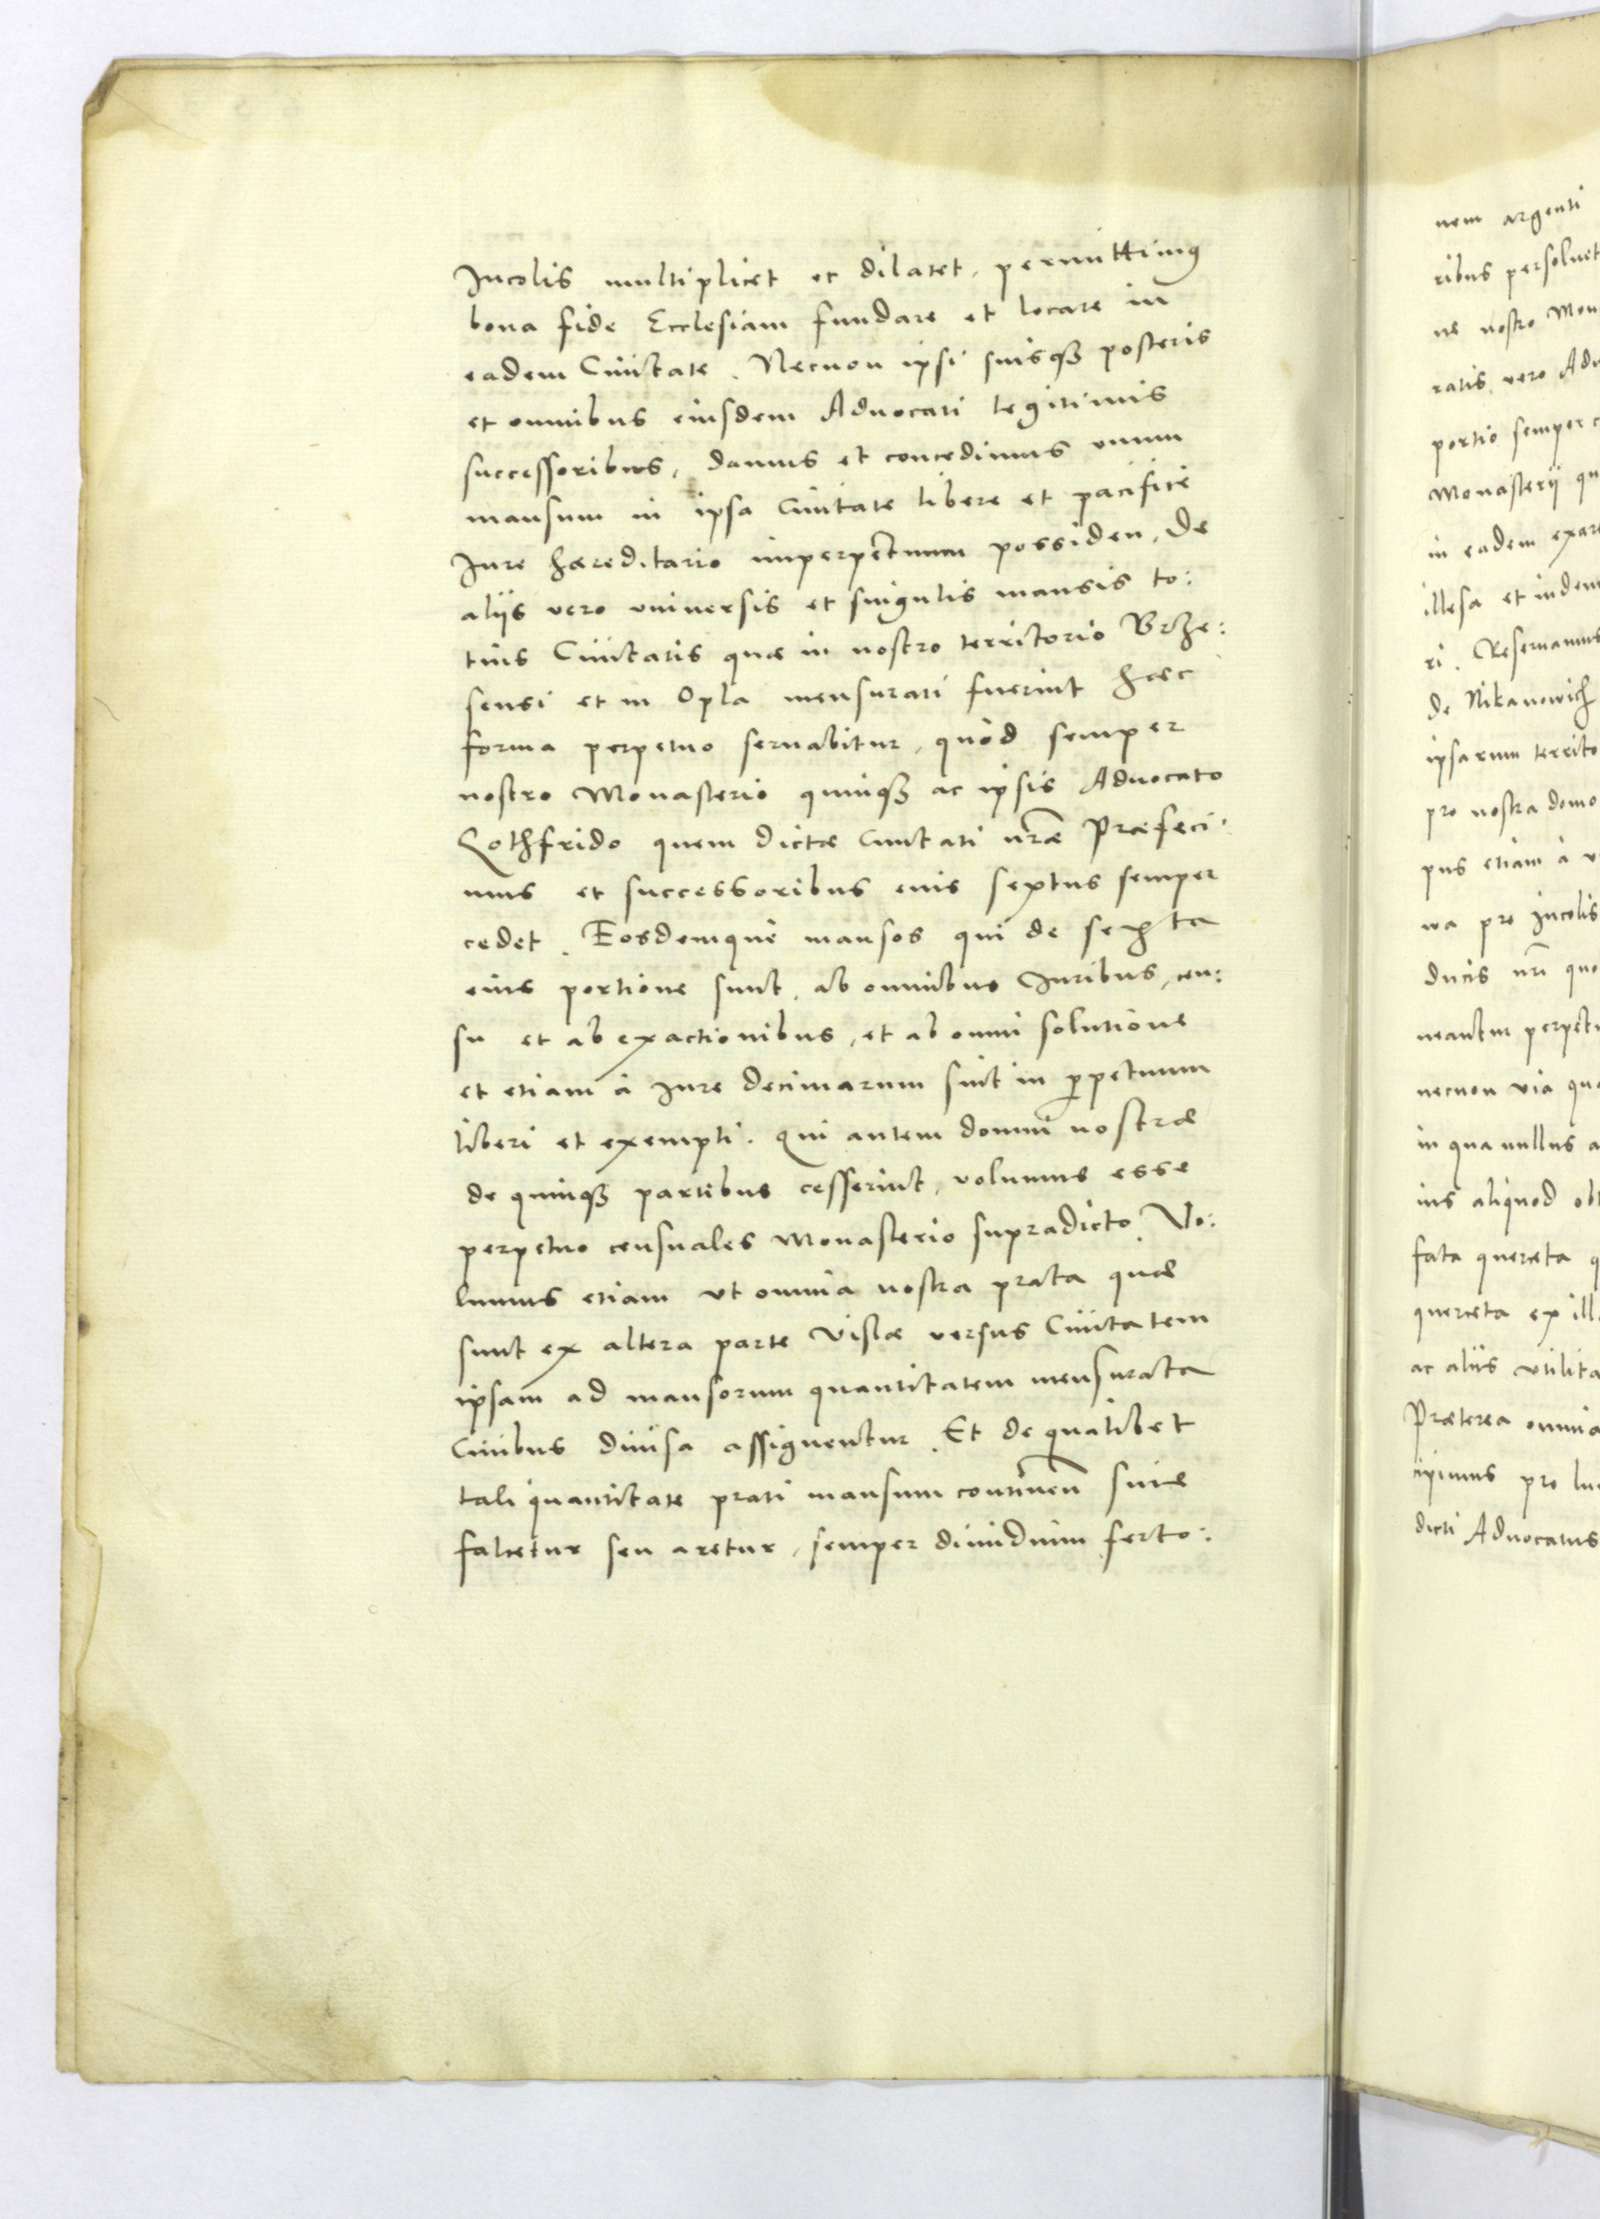 Incolis multiplicet et dilatet, permittimus
bona fide Ecclesiam fundare et locare in
eadem Ciuitate. Necnon ipsi suisq3 posteris
et omnibus eiusdem Aduocati legitimis
successoribus, damus et concedimus vnum
mansum in ipsa Ciuitate libere et pacifice
Iure hæreditario imperpetuum possiden. De
aliis vero vniuersis et singulis mansis to:
tius Ciuitatis quæ in nostro territorio Brze:
sensi et in Opla mensurati fuerint hæc
forma perpetuo seruabitur, quòd semper
nostro Monasterio quinq3 ac ipsis Aduocato
Lothfrido quem dictæ Ciuitati nr̃æ Præfeci:
mus et successoribus euis sextus semper
cedet. Eosdemque mansos qui de sexta
eius portione sunt, ab omnibus Iuribus, cen:
su et ab exactionibus, et ab omni solutione
et etiam à Iure decimarum sint in ꝑpetuum
liberi et exempti. Qui autem domui nostræ
de quinq3 partibus cesserint, volumus esse
perpetuo censuales Monasterio supradicto. Vo:
lumus etiam vt omnia nostra prata quæ
sunt ex altera parte Vislæ versus Ciuitatem
ipsam ad mansorum quantitatem mensurata
Ciuibus diuisa assignentur. Et de qualibet
tali quantitate prati mansum continen siue
falcetur seu aretur, semper dimidium ferto:
nem argenti
ribus persoluet
ne nostro Mon
ratis vero Adu
portio semper c
Monasterij qu
in eadem exar
illesa et indem
ri. Reseruamus
de Nikanowich
ipsarum territo
pro nostra domo
pus etiam à v
wa pro Incolis
ducis nr̃i quo
neantur perpetu
necnon via qua
in qua nullus a
ius aliquod obt
fata querceta q
querceta ex ill
ac aliis vtilita
Præterea omnia
cipimus pro lu
dicti Aduocatus